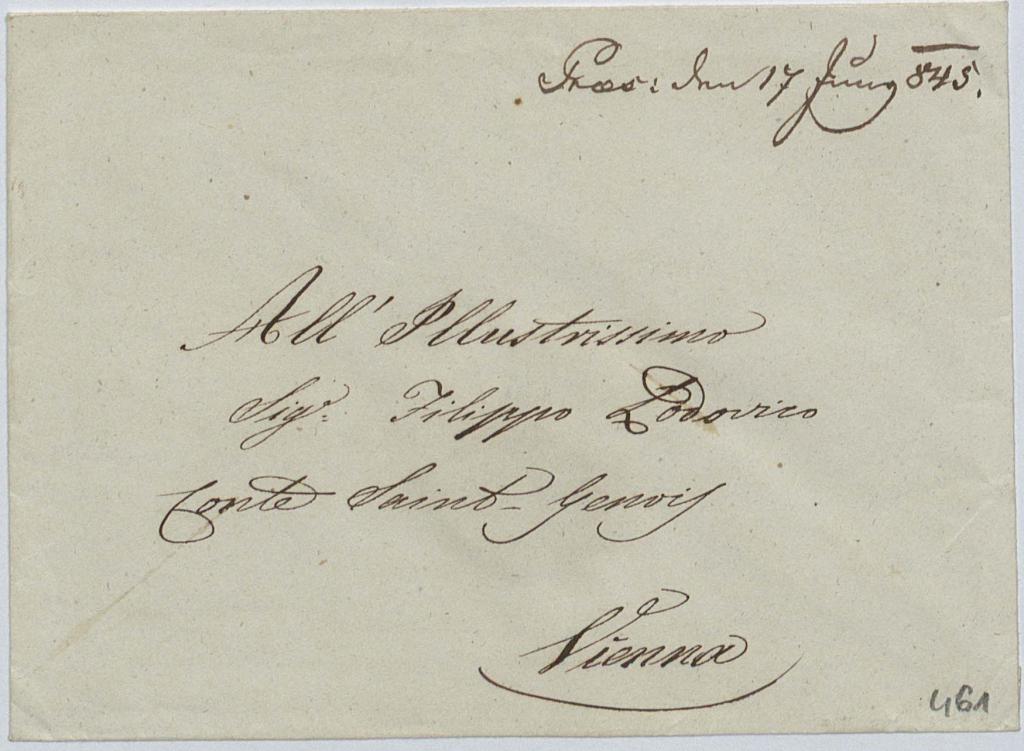 Praes: den 17 Juny 845.
All' Illustrissimo
Sigr. Filippo Lodovico
Conte Saint-Genois
Vienna
461